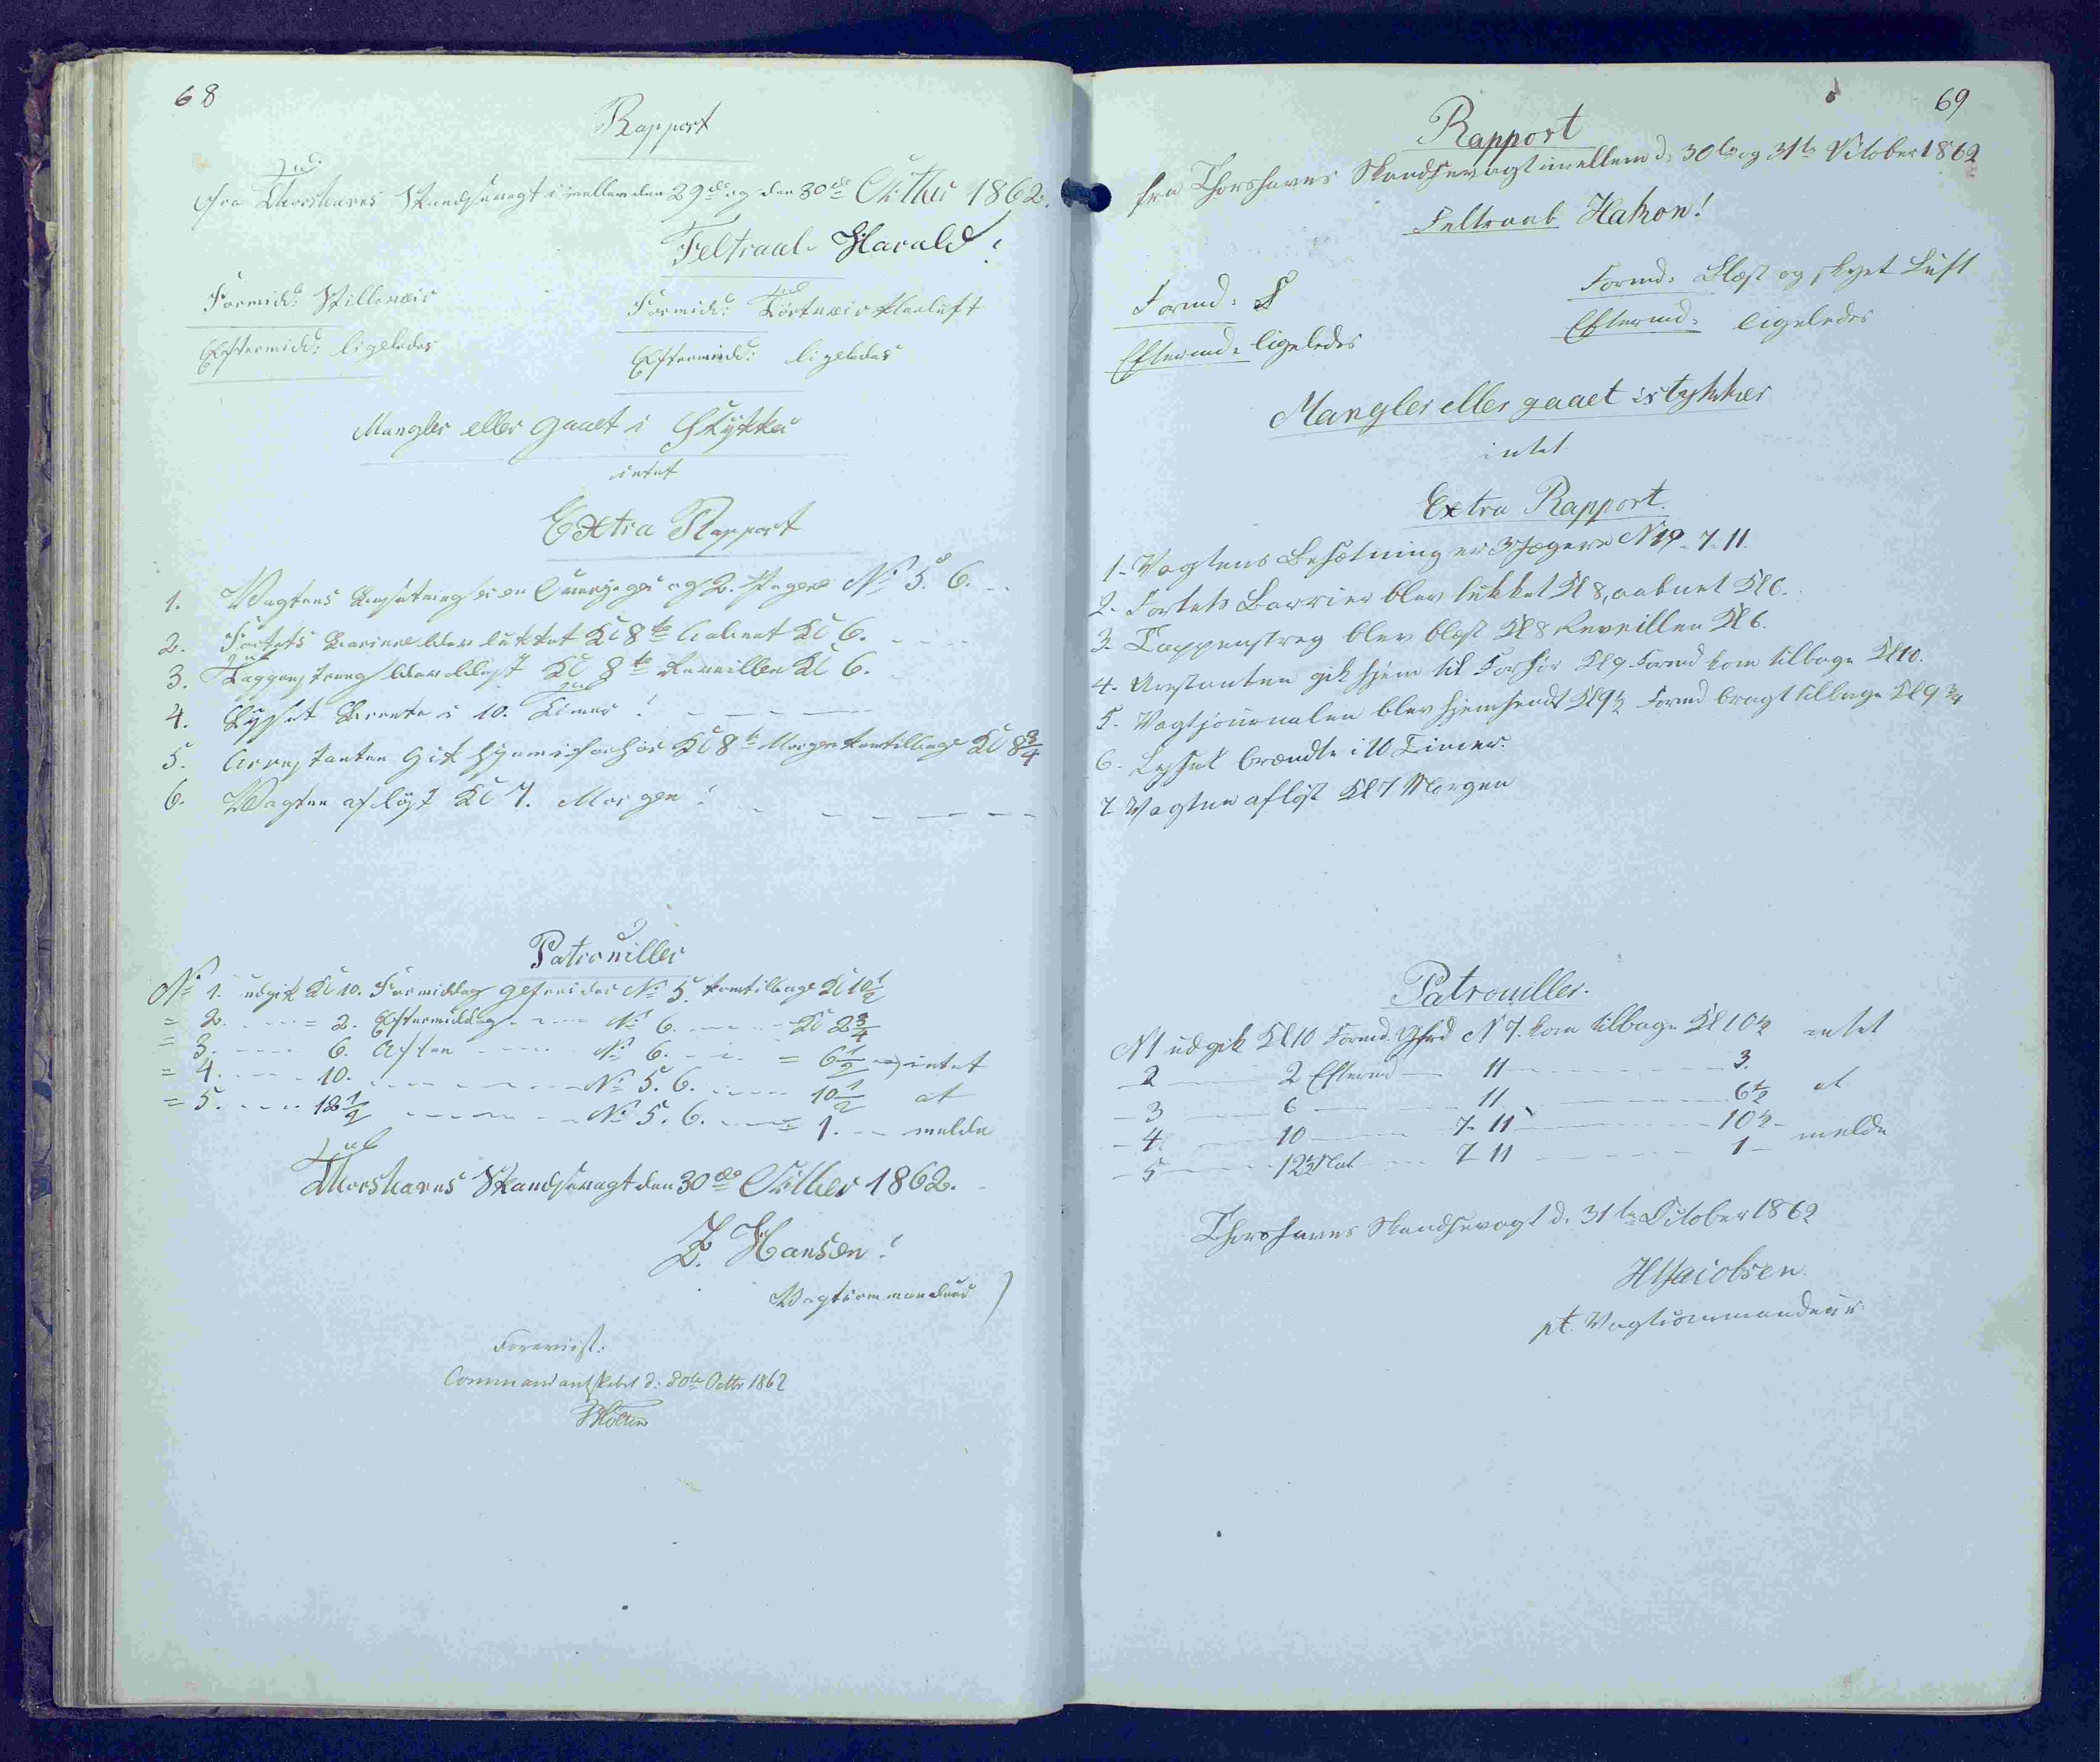 68
Rapport
fra Thorshavns Skandsevagt imellem den 29de og den 30de Octber 1862.
Feltraab Harald!
Formidd: Stilleveir
Formidd: Tørtveir klar luft
Eftermidd: ligeledes
Eftermidd: ligeledes
Mangler eller gaaet i Stykker
intet
Extra Rapport
1. Vagtens Besætning er en Overjæger og 2. Jægere No 5. 6.
2. Fortets Barriere blev lukket Kl 8te Aabnet Kl 6.
3. Tappenstreng blev blæst Kl 8te Reveillen Kl 6.
4. Lyset Brente i 10. Timer!
5. Arrestanten Gik hjem i forhør Kl 8te Morgen kom tilbage Kl 8 3/4
6. Vagten afløst Kl 7. Morgen!
Patrouiller
No 1. udgik Kl 10. Formiddag gefreider No 5. kom tilbage Kl 10 1/2
= 2. = 2. Eftermiddag No 6. Kl 2 3/4
= 3. 6. Aften No 6. = 6 1/2 intet
= 4. 10. No 5. 6. 10 1/2 at
= 5. 12 1/2 No 5. 6. = 1. melde
Thorshavns Skandsevagt den 30de Octber 1862.
Z. Hansen!
Vagtcommandeur
Foreviist.
Commandantskabet d. 30te Octbr 1862
69
Rapport
fra Thorshavns Skandsevagt imellem d. 30te og 31te October 1862
Feltraab Hakon!
Formd:
Formd: Blæst og skyet Luft
Eftermd: ligeledes
Eftermd: ligeledes
Mangler eller gaaet istykker
intet
Extra Rapport.
1. Vagtens Besætning er 3 Jægere N 19. 7. 11.
2. Fortets Barrier blev lukket Kl 8, aabnet Kl 6.
3. Tappenstreg blev blæst Kl 8 Reveillen Kl 6.
4. Arrestanten gik hjem til Forhør Kl 9 Formd kom tilbage Kl 10.
5. Vagtjournalen blev hjemsendt Kl 9 1/2 Formd bragt tilbage Kl 9 3/4
6. Lyset brændte i 10 Timer.
7. Vagten afløst Kl 7 Morgen
Patrouiller.
N 1 udgik Kl 10 Formd. Gfrd N 7. kom tilbage Kl 10 1/2 intet
2 2 Eftermd 11 3.
3 6 11 6 1/2 at
4 10 7. 11 10 1/2 melde
5 12 1/2 Nat 7 11 1
Thorshavns Skandsevagt d. 31te October 1862
H Jacobsen.
pt. Vagtcommandeur